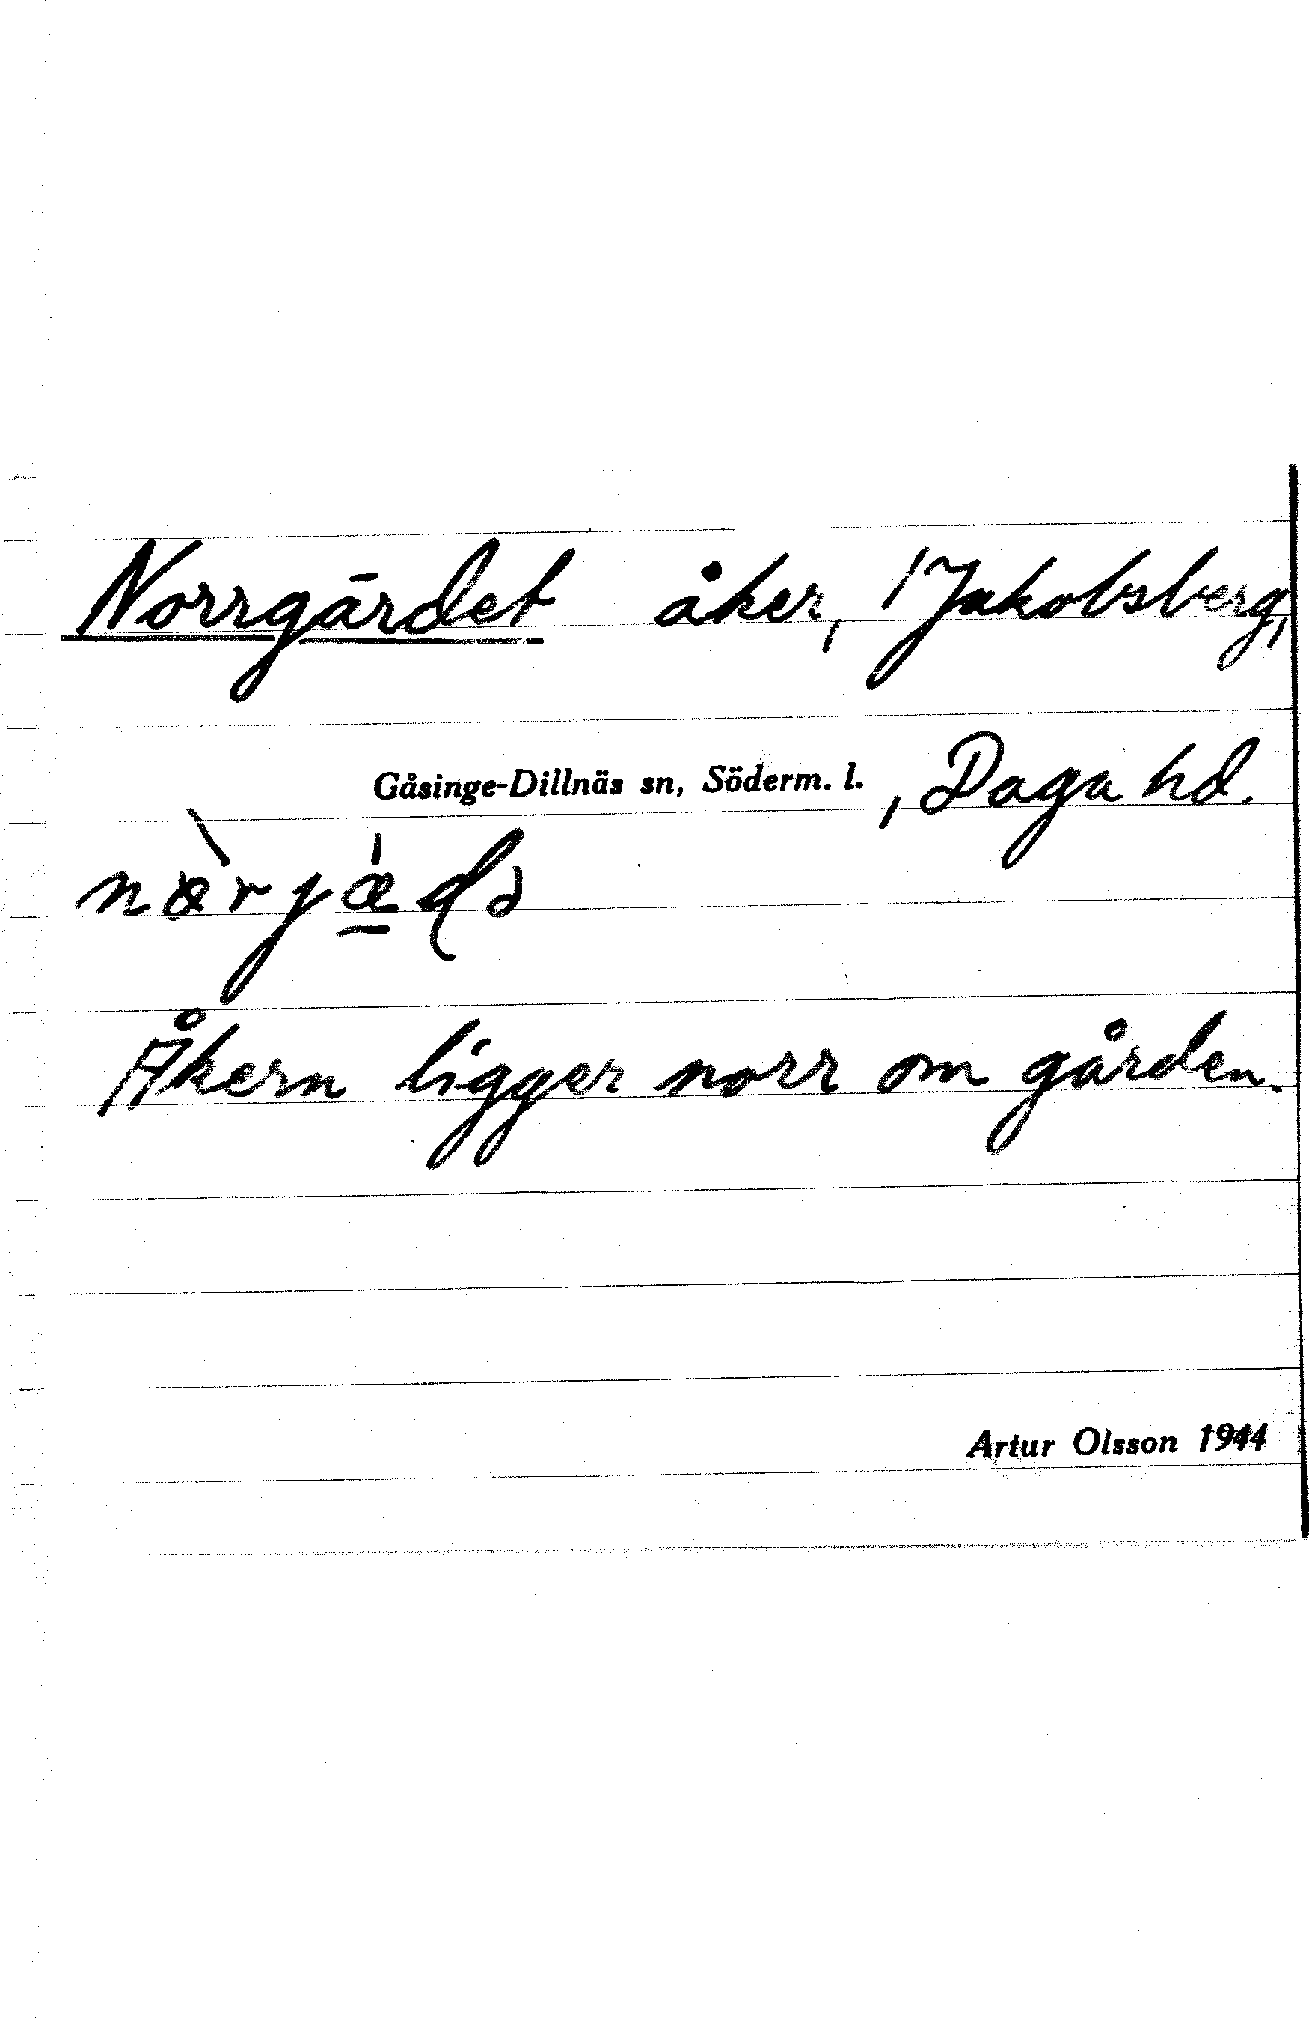 Norrgärdet åker, 1 Jakobsberg,
Gåsinge-Dillnäs sn, Söderm. l. , Daga hd.
Åkern ligger norr om gården.
Artur Olsson 1944